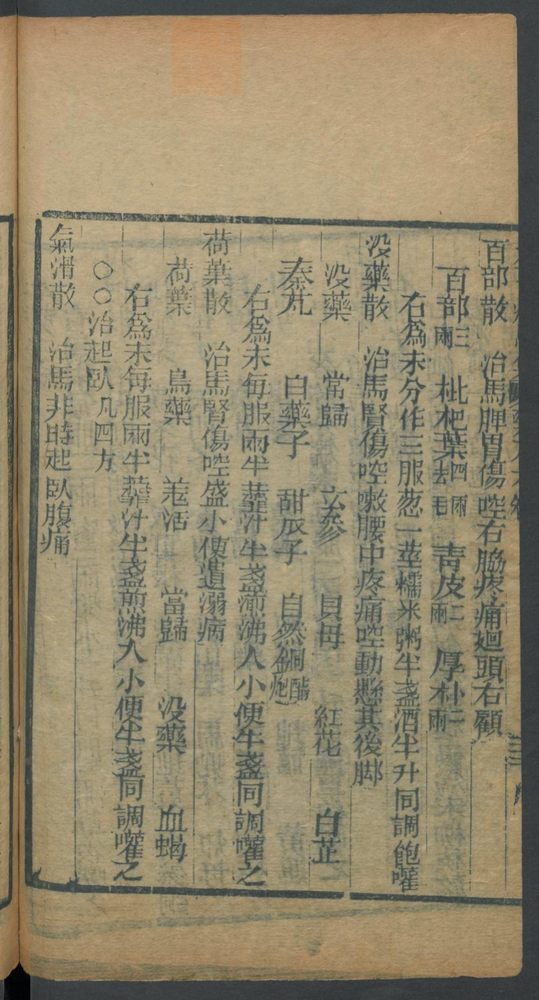 百部散 治馬脾胃傷啌右脇疼痛廻頭右顧
百部三兩 枇杷葉四兩去毛 靑皮二兩 厚朴二兩
右爲末分作三服葱一莖糯米粥半盞酒半升同調飽嚾
沒藥散 治馬腎傷啌嗽腰中疼痛啌動懸其後脚
沒藥 當歸 玄參 貝母 紅花 白芷
秦艽 白藥子 甜瓜子 自然銅醋炮
右爲末每服兩半虀汁半盞煎沸入小便半盞同調嚾之
荷葉散 治馬腎傷啌盛小便遺溺病
荷葉 烏藥 羌活 當歸 沒藥 血蝎
右爲末每服兩半虀汁半盞煎沸入小便半盞同調嚾之
〇〇治起卧 凡四方
氣滑散 治馬非時起卧腹痛